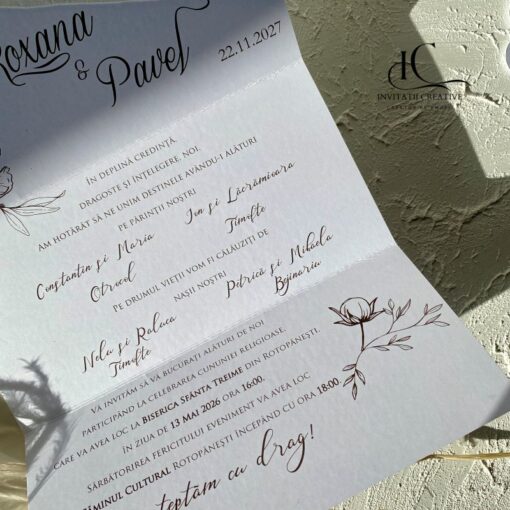 Roxana
&
Pavel
22.11.2027
IC
INVITAȚII CREATIVE
ÎN DEPLINĂ CREDINȚĂ,
DRAGOSTE ȘI ÎNȚELEGERE, NOI,
AM HOTĂRÂT SĂ NE UNIM DESTINELE AVÂNDU-I ALĂTURI
PE PĂRINȚII NOȘTRI
Constantin și Maria
Otrocol
Ion și Lăcrămioara
Timofte
PE DRUMUL VIEȚII VOM FI CĂLĂUZIȚI DE
NAȘII NOȘTRI
Nelu și Raluca
Timofte
Petrică și Mihaela
Bejinariu
VĂ INVITĂM SĂ VĂ BUCURAȚI ALĂTURI DE NOI
PARTICIPÂND LA CELEBRAREA CUNUNIEI RELIGIOASE.
CARE VA AVEA LOC LA BISERICA SFÂNTA TREIME DIN ROTOPĂNEȘTI,
ÎN ZIUA DE 13 MAI 2026 ORA 16:00.
SĂRBĂTORIREA FERICITULUI EVENIMENT VA AVEA LOC
CĂMINUL CULTURAL ROTOPĂNEȘTI ÎNCEPÂND CU ORA 18:00
șteptăm cu drag!